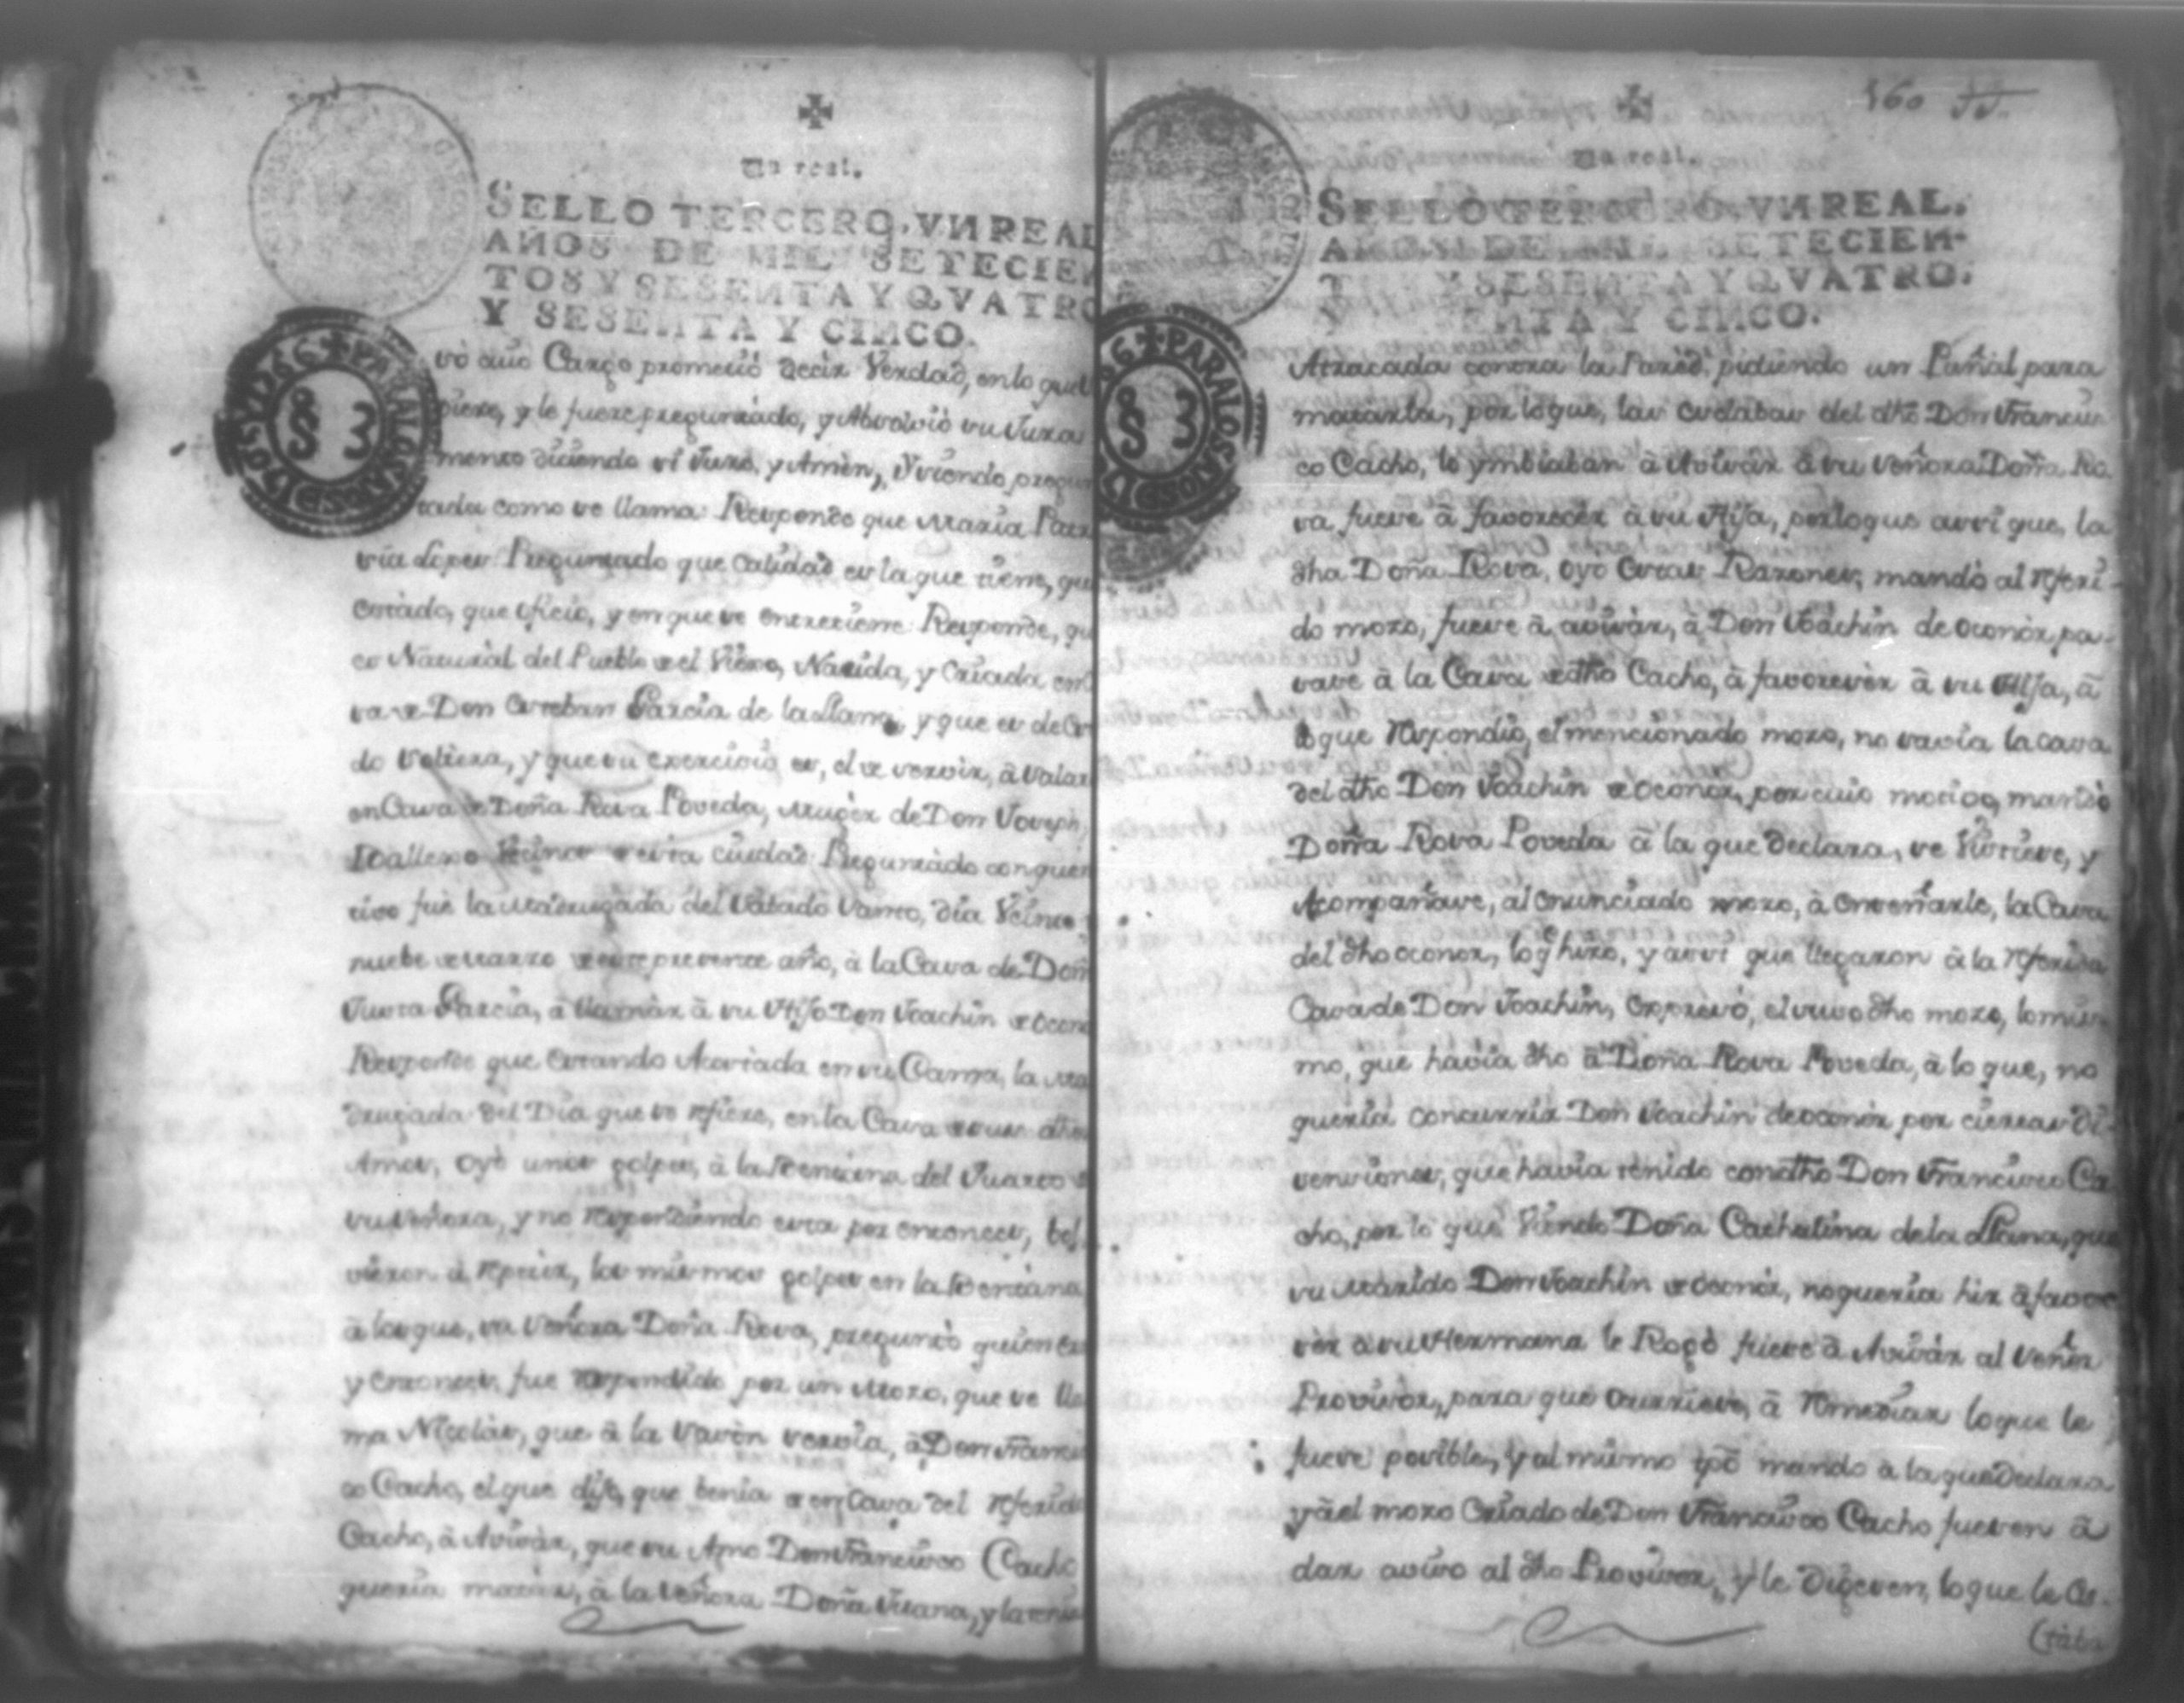 Un real.
SELLO TERCERO, VN REAL
AÑOS DE MIL SETECIEN
TOS Y SESENTA Y QVATRO
Y SESENTA Y CINCO.
PARA LOS AÑOS DE 1766
so cuio Cargo prometió decir Verdad, en lo que
piere, y le fuere preguntado, y Absolvió su Jura
mento diciendo si Juro, y Amèn, y siendo pregun
tada como se llama: Responde que Maria Patr
sia Lopes Preguntado que Calidad es la que tiene, que
Estàdo, que oficio, y en que se entretiene: Responde, qu
es Naturàl del Pueblo de el Viexo, Nacida, y Criada en
sa de Don Esteban Garcia de la Llana, y que es de Es
do Soltera, y que su exercicio es, el de servir, à Salar
en Casa de Doña Rosa Poveda, Muger de Don Joseph
Vallexo Vecinos de esta ciudad: Preguntàdo con que
tivo fuè la Madrugàda del Sabado Santo, dia Veinte
nuebe de Marzo de este presente año, à la Casa de Doñ
Justa Garcia, à llamàr à su Hijo Don Joachin de Ocono
Responde que Estando Acostada en su Cama, la Ma
drugada del Dia que se refiere, en la Casa de sus dhos
Amos, oyò unos golpes, à la Ventana del Quarto d
su Señora, y no respondiendo esta por entonces, bol
vieron à repetir, los mismos golpes en la Ventana
à lo que, su Señora Doña Rosa, preguntò quien Er
y Entonces fue respondido por un Mozo, que se lla
ma Nicolàs, que à la Sazòn servia, à Don Francis
co Cacho, el que dijo, que benia de en Casa del referido
Cacho, à Avisàr, que su Amo Don Francisco Cacho
queria matàr, à la Señora Doña Juana, y la tenia
160
Un real.
SELLO TERCERO, VN REAL.
AÑOS DE MIL SETECIEN-
T Y SESENTA Y QVATRO.
Y SENTA Y CINCO.
PARA LOS AÑOS DE 66
Atracada contra la Pared, pidiendo un Puñal para
matarla, por lo que, las Esclabas del dho Don Francis
co Cacho, lo ymbiaban à Avisàr à su Señora Doña Ro
sa, fuese à favorecer à su Hija, por lo que assi que, la
dha Doña Rosa, oyò Estas Razones, mandò al referi-
do mozo, fuese à avisàr, à Don Joachin de Oconòr, pa-
sase à la Casa de dho Cacho, à favoreser à su Hija, à
lo que respondió, el mencionado mozo, no savia la casa
del dho Don Joachin de Oconor, por cuio motivo, mandò
Doña Rosa Poveda à la que declara, se Vistiese, y
Acompañase, al Enunciado mozo, à enseñarle, la Casa
del dho Oconor, lo q hizo, y assi que llegaron à la referida
Casa de Don Joachin, Expresò, el suso dho mozo, lo mis-
mo, que havia dho à Doña Rosa Poveda, à lo que, no
queria concurrir Don Joachin de Oconòr por ciertas di-
senciones, que havia tenido con dho Don Francisco Ca
cho, por lo que Viendo Doña Cathalina de la Llana, que
su Marido Don Joachin de Oconòr, no queria hir à favore
ser à su Hermana le Rogò fuese à Avisàr al Señòr
Provisor, para que Ocurriese, à remediar lo que le
fuese posible, y al mismo tpõ mando à la que declara
y à el mozo Criado de Don Francisco Cacho fuesen à
dar aviso al dho Provisor, y le dijesen, lo que le Es-
(taba